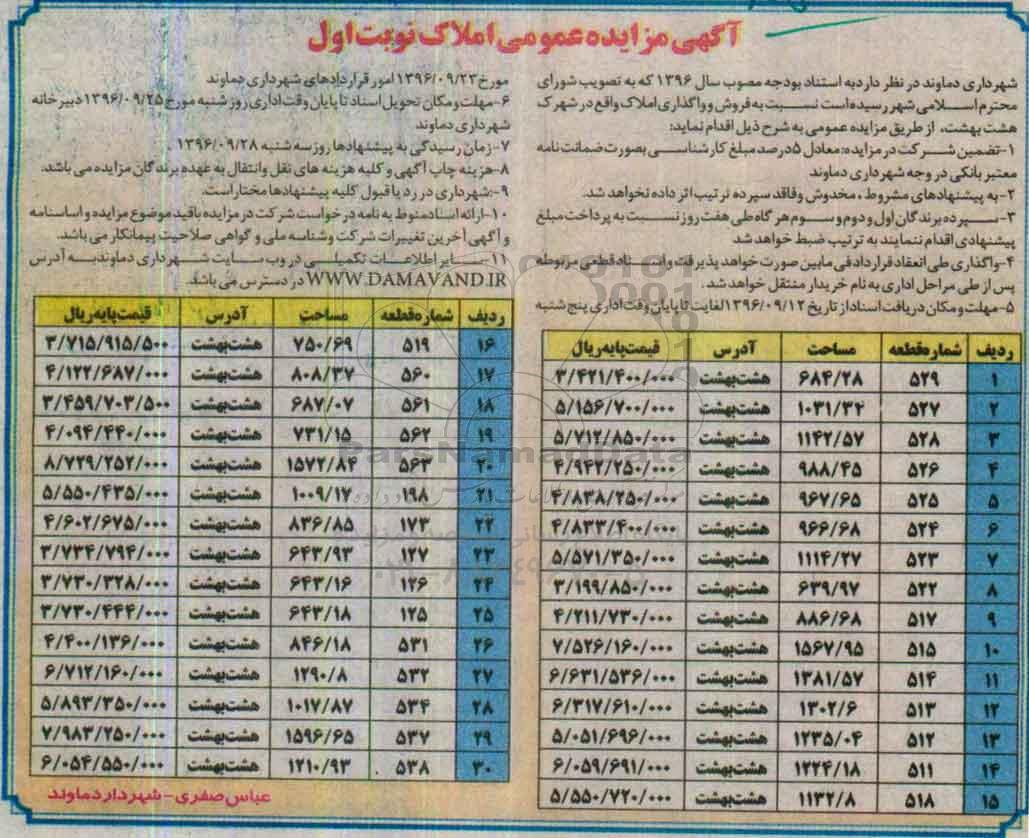 آگهی مزایده عمومی املاک نوبت اول
شهرداری دماوند در نظر دارد به استناد بودجه مصوب سال ۱۳۹۶ که به تصویب شورای
محترم اسلامی شهر رسیده است نسبت به فروش و واگذاری املاک واقع در شهرک
هشت بهشت، از طریق مزایده عمومی به شرح ذیل اقدام نماید:
۱-تضمین شرکت در مزایده: معادل ۵درصد مبلغ کارشناسی بصورت ضمانت نامه
معتبر بانکی در وجه شهرداری دماوند
۲-به پیشنهادهای مشروط، مخدوش و فاقد سپرده ترتیب اثر داده نخواهد شد.
۳-سپرده برندگان اول و دوم و سوم هرگاه طی هفت روز نسبت به پرداخت مبلغ
پیشنهادی اقدام ننمایند به ترتیب ضبط خواهد شد
۴-واگذاری طی انعقاد قرارداد فی مابین صورت خواهد پذیرفت و اسناد قطعی مربوطه
پس از طی مراحل اداری به نام خریدار منتقل خواهد شد.
۵-مهلت و مکان دریافت اسناد از تاریخ ۱۳۹۶/۰۹/۱۲ لغایت تا پایان وقت اداری پنج شنبه
مورخ ۱۳۹۶/۰۹/۲۳ امور قراردادهای شهرداری دماوند
۶-مهلت و مکان تحویل اسناد تا پایان وقت اداری روز شنبه مورخ ۱۳۹۶/۰۹/۲۵ دبیرخانه
شهرداری دماوند
۷-زمان رسیدگی به پیشنهادها روز سه شنبه ۱۳۹۶/۰۹/۲۸ .
۸-هزینه چاپ آگهی و کلیه هزینه های نقل وانتقال به عهده برندگان مزایده می باشد.
۹-:شهرداری در رد یا قبول کلیه پیشنهادها مختار است.
۱۰-ارائه اسناد منوط به نامه درخواست شرکت در مزایده باقید موضوع مزایده و اساسنامه
و آگهی آخرین تغییرات شرکت وشناسه ملی و گواهی صلاحیت پیمانکار می باشد.
۱۱-سایر اطلاعات تکمیلی در وب سایت شهرداری دماوند به آدرس
WWW.DAMAVAND.IR در دسترس می باشد.
ردیف شماره قطعه مساحت آدرس قیمت پایه ریال
۱ ۵۲۹ ۶۸۴/۲۸ هشت بهشت ۳/۴۲۱/۴۰۰/۰۰۰
۲ ۵۲۷ ۱۰۳۱/۳۴ هشت بهشت ۵/۱۵۶/۷۰۰/۰۰۰
۳ ۵۲۸ ۱۱۴۲/۵۷ هشت بهشت ۵/۷۱۲/۸۵۰/۰۰۰
۴ ۵۲۶ ۹۸۸/۴۵ هشت بهشت ۴/۹۴۲/۲۵۰/۰۰۰
۵ ۵۲۵ ۹۶۷/۶۵ هشت بهشت ۴/۸۳۸/۲۵۰/۰۰۰
۶ ۵۲۴ ۹۶۶/۶۸ هشت بهشت ۴/۸۳۳/۴۰۰/۰۰۰
۷ ۵۲۳ ۱۱۱۴/۲۷ هشت بهشت ۵/۵۷۱/۳۵۰/۰۰۰
۸ ۵۲۲ ۶۳۹/۹۷ هشت بهشت ۳/۱۹۹/۸۵۰/۰۰۰
۹ ۵۱۷ ۸۸۶/۶۸ هشت بهشت ۴/۲۱۱/۷۳۰/۰۰۰
۱۰ ۵۱۵ ۱۵۶۷/۹۵ هشت بهشت ۷/۵۲۶/۱۶۰/۰۰۰
۱۱ ۵۱۴ ۱۳۸۱/۵۷ هشت بهشت ۶/۶۳۱/۵۳۶/۰۰۰
۱۲ ۵۱۳ ۱۳۰۲/۶ هشت بهشت ۶/۳۱۷/۶۱۰/۰۰۰
۱۳ ۵۱۲ ۱۲۳۵/۰۴ هشت بهشت ۵/۰۵۱/۶۹۶/۰۰۰
۱۴ ۵۱۱ ۱۲۲۴/۱۸ هشت بهشت ۶/۰۵۹/۶۹۱/۰۰۰
۱۵ ۵۱۸ ۱۱۳۲/۸ هشت بهشت ۵/۵۵۰/۷۲۰/۰۰۰
ردیف شماره قطعه مساحت آدرس قیمت پایه ریال
۱۶ ۵۱۹ ۷۵۰/۶۹ هشت بهشت ۳/۷۱۵/۹۱۵/۵۰۰
۱۷ ۵۶۰ ۸۰۸/۳۷ هشت بهشت ۴/۱۲۲/۶۸۷/۰۰۰
۱۸ ۵۶۱ ۶۸۷/۰۷ هشت بهشت ۳/۴۵۹/۷۰۳/۵۰۰
۱۹ ۵۶۲ ۷۳۱/۱۵ هشت بهشت ۴/۰۹۴/۴۴۰/۰۰۰
۲۰ ۵۶۳ ۱۵۷۲/۸۴ هشت بهشت ۸/۷۲۹/۲۵۲/۰۰۰
۲۱ ۱۹۸ ۱۰۰۹/۱۷ هشت بهشت ۵/۵۵۰/۴۳۵/۰۰۰
۲۲ ۱۷۳ ۸۳۶/۸۵ هشت بهشت ۴/۶۰۲/۶۷۵/۰۰۰
۲۳ ۱۲۷ ۶۴۳/۹۳ هشت بهشت ۳/۷۳۴/۷۹۴/۰۰۰
۲۴ ۱۲۶ ۶۴۳/۱۶ هشت بهشت ۳/۷۳۰/۳۲۸/۰۰۰
۲۵ ۱۲۵ ۶۴۳/۱۸ هشت بهشت ۳/۷۳۰/۴۴۴/۰۰۰
۲۶ ۵۳۱ ۸۴۶/۱۸ هشت بهشت ۴/۴۰۰/۱۳۶/۰۰۰
۲۷ ۵۳۲ ۱۲۹۰/۸ هشت بهشت ۶/۷۱۲/۱۶۰/۰۰۰
۲۸ ۵۳۴ ۱۰۱۷/۸۷ هشت بهشت ۵/۸۹۳/۳۵۰/۰۰۰
۲۹ ۵۳۷ ۱۵۹۶/۶۵ هشت بهشت ۷/۹۸۳/۲۵۰/۰۰۰
۳۰ ۵۳۸ ۱۲۱۰/۹۳ هشت بهشت ۶/۰۵۴/۵۵۰/۰۰۰
عباس صفری - شهردار دماوند
ParsNamadData